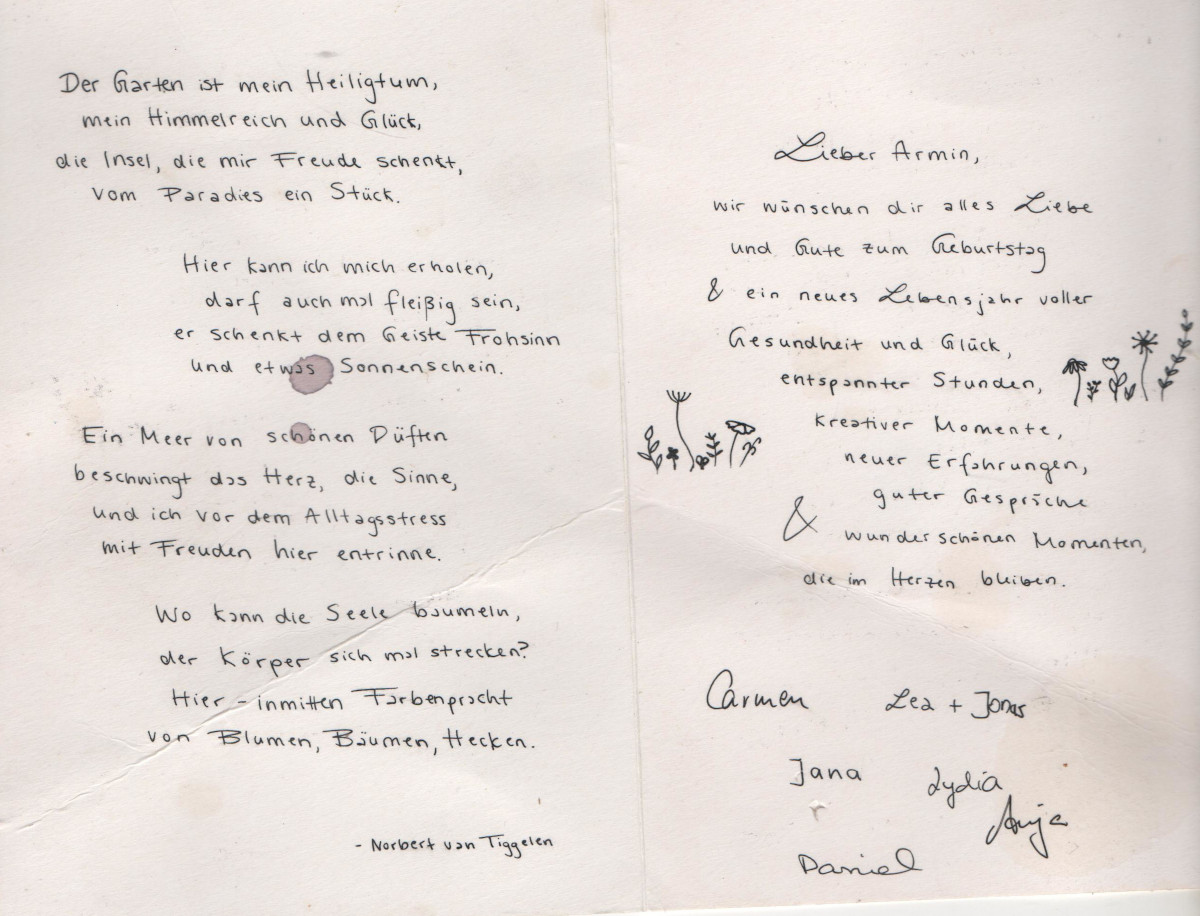 Der Garten ist mein Heiligtum,
mein Himmelreich und Glück,
die Insel, die mir Freude schenkt,
vom Paradies ein Stück.
Hier kann ich mich erholen,
darf auch mal fleißig sein,
er schenkt dem Geiste Frohsinn
und etwas Sonnenschein.
Ein Meer von schönen Düften
beschwingt das Herz, die Sinne,
und ich vor dem Alltagsstress
mit Freuden hier entrinne.
Wo kann die Seele baumeln,
der Körper sich mal strecken?
Hier - inmitten Farbenpracht
von Blumen, Bäumen, Hecken.
- Norbert van Tiggelen
Lieber Armin,
wir wünschen dir alles Liebe
und Gute zum Geburtstag
& ein neues Lebensjahr voller
Gesundheit und Glück,
entspannter Stunden,
kreativer Momente,
neuer Erfahrungen,
guter Gespräche
& wunderschönen Momenten,
die im Herzen bleiben.
Carmen Lea + Jonas
Jana Lydia
Anja
Daniel